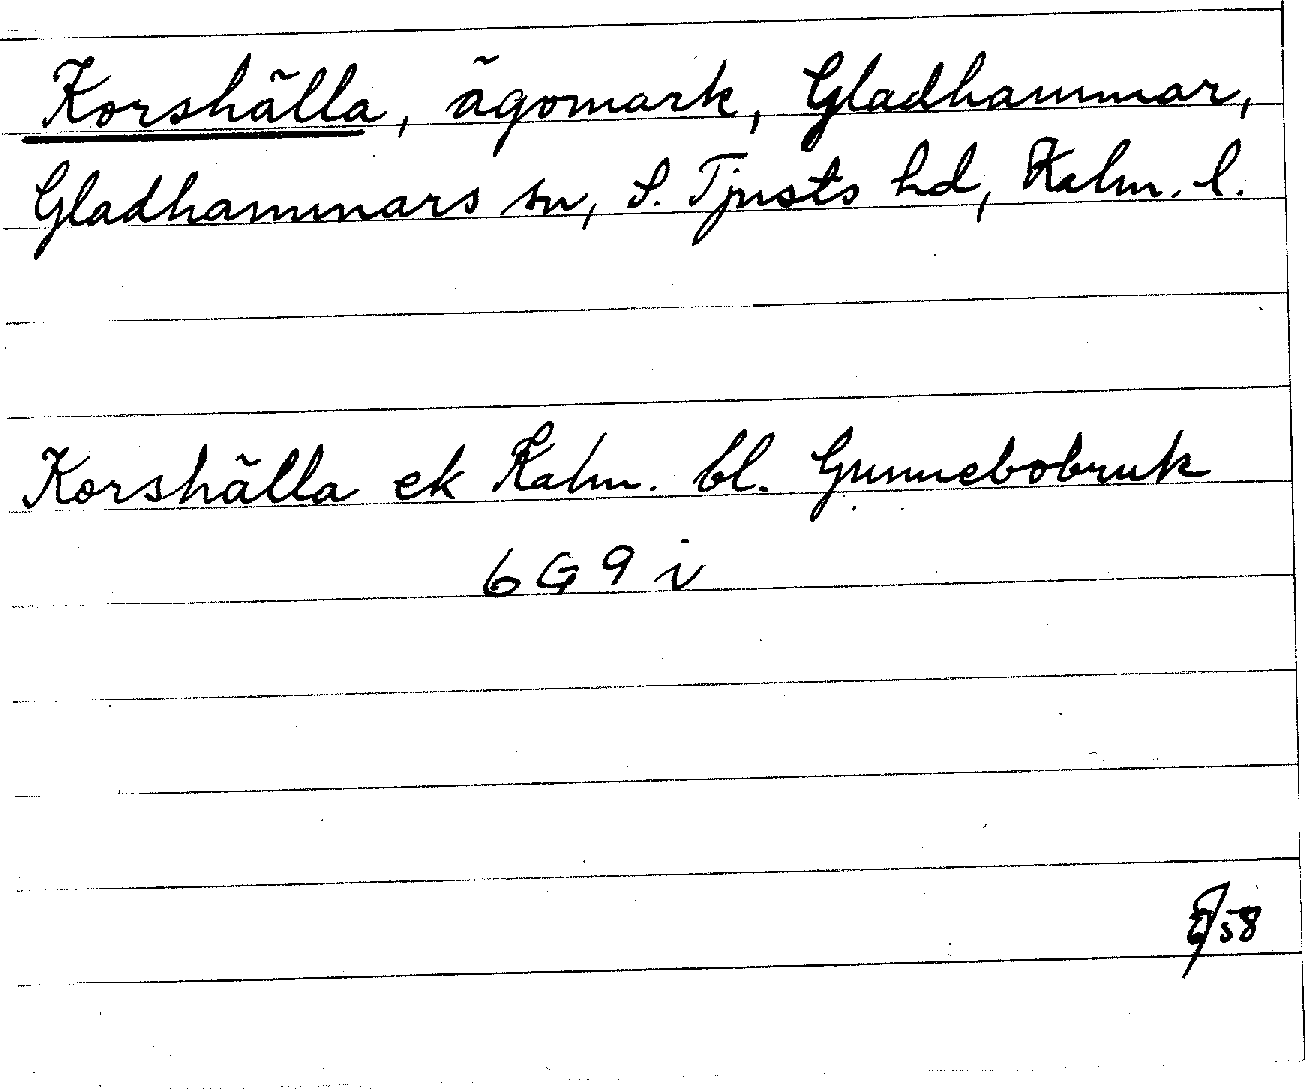 Korshälla, ägomark, Gladhammar,
Gladhammars sn, S. Tjusts hd, Kalm. l.
Korshälla ek Kalm. bl. Gunnebobruk
6G9i
58